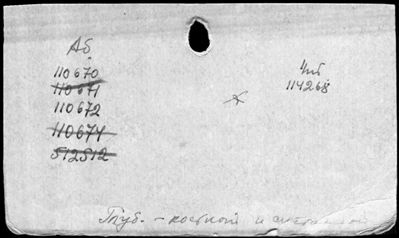 Аб
110670
110671
110672
110674
512512
Чиб
114268
Туб. - костной и